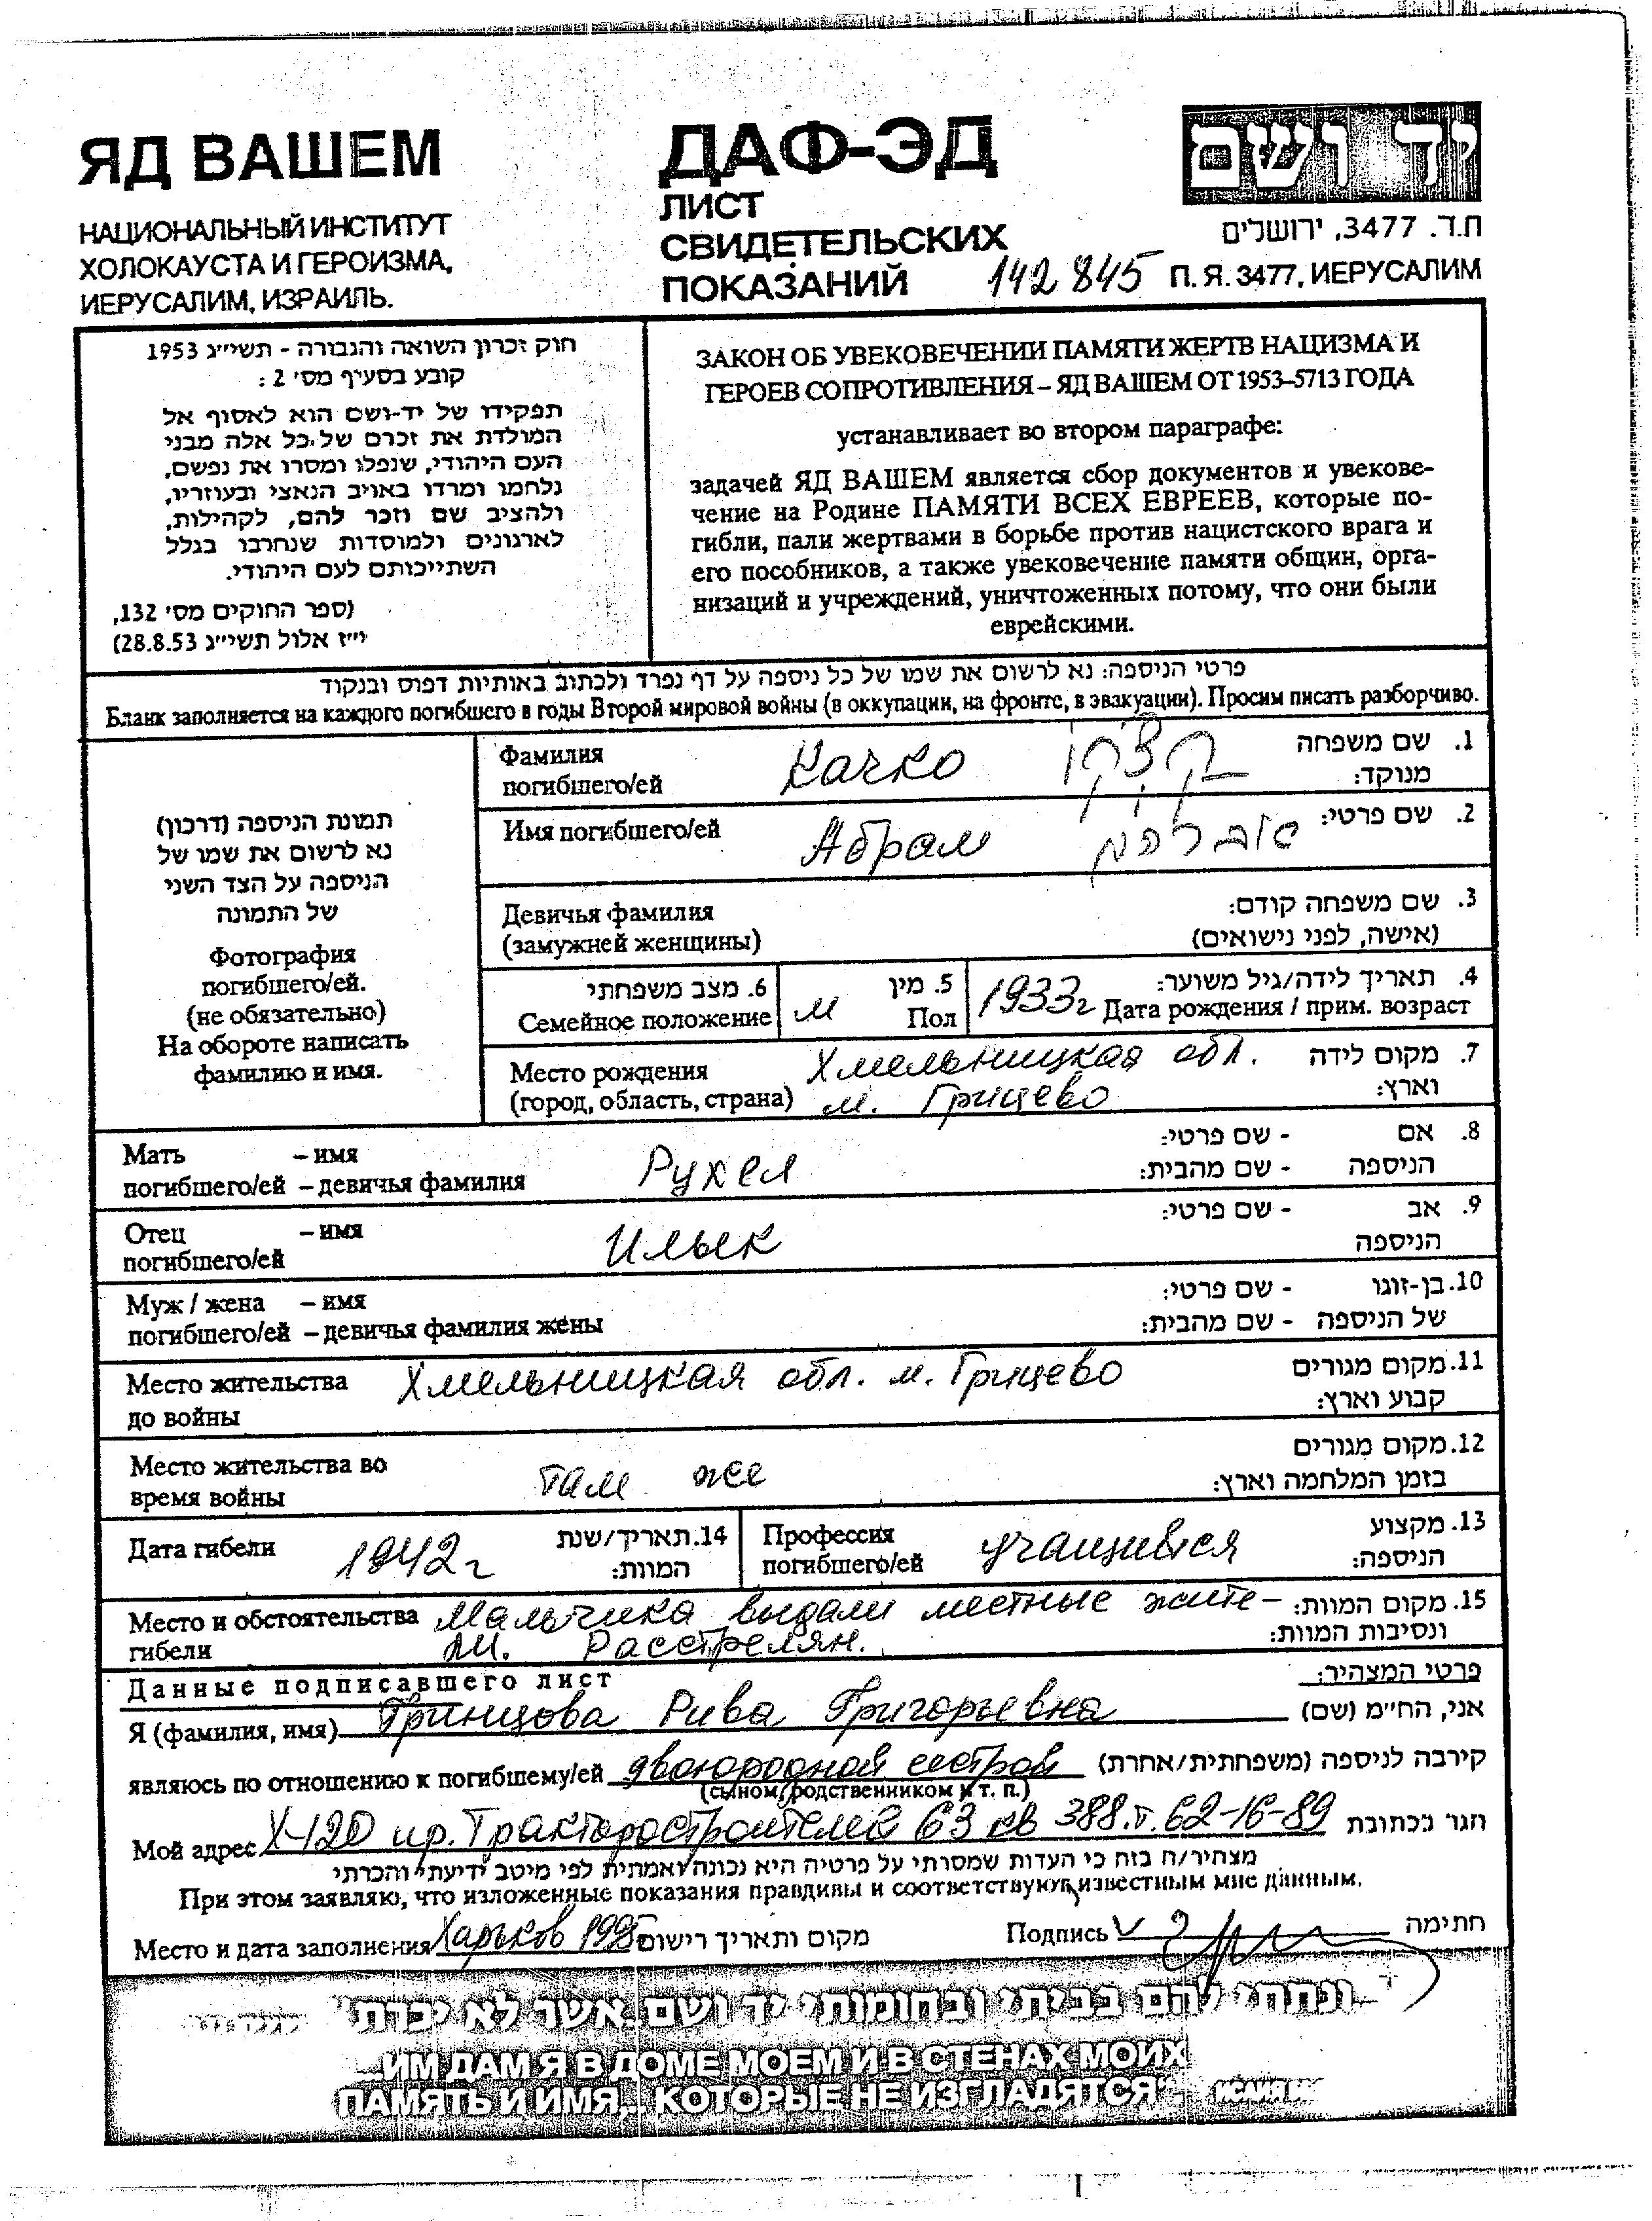 ЯД ВАШЕМ
НАЦИОНАЛЬНЫЙ ИНСТИТУТ
ХОЛОКАУСТА И ГЕРОИЗМА,
ИЕРУСАЛИМ, ИЗРАИЛЬ.
ДАФ-ЭД
ЛИСТ
СВИДЕТЕЛЬСКИХ
ПОКАЗАНИЙ 142845
יד ושם
ת.ד. 3477, ירושלים
П. Я. 3477, ИЕРУСАЛИМ
חוק זכרון השואה והגבורה - תשי״ג 1953
קובע בסעיף מס׳ 2 :
תפקידו של יד-ושם הוא לאסוף אל
המולדת את זכרם של כל אלה מבני
העם היהודי, שנפלו ומסרו את נפשם,
נלחמו ומרדו באויב הנאצי ובעוזריו,
ולהציב שם וזכר להם, לקהילות,
לארגונים ולמוסדות שנחרבו בגלל
השתייכותם לעם היהודי.
(ספר החוקים מס׳ 132,
י״ז אלול תשי״ג 28.8.53)
ЗАКОН ОБ УВЕКОВЕЧЕНИИ ПАМЯТИ ЖЕРТВ НАЦИЗМА И
ГЕРОЕВ СОПРОТИВЛЕНИЯ – ЯД ВАШЕМ ОТ 1953–5713 ГОДА
устанавливает во втором параграфе:
задачей ЯД ВАШЕМ является сбор документов и увекове-
чение на Родине ПАМЯТИ ВСЕХ ЕВРЕЕВ, которые по-
гибли, пали жертвами в борьбе против нацистского врага и
его пособников, а также увековечение памяти общин, орга-
низаций и учреждений, уничтоженных потому, что они были
еврейскими.
פרטי הניספה: נא לרשום את שמו של כל ניספה על דף נפרד ולכתוב באותיות דפוס ובנקוד
Бланк заполняется на каждого погибшего в годы Второй мировой войны (в оккупации, на фронте, в эвакуации). Просим писать разборчиво.
תמונת הניספה (דרכון)
נא לרשום את שמו של
הניספה על הצד השני
של התמונה
Фотография
погибшего/ей.
(не обязательно)
На обороте написать
фамилию и имя.
Фамилия Качко קַצְ׳קוֹ 1. שם משפחה
погибшего/ей מנוקד:
Имя погибшего/ей Абрам אברהם 2. שם פרטי:
Девичья фамилия 3. שם משפחה קודם:
(замужней женщины) (אישה, לפני נישואים)
6. מצב משפחתי
Семейное положение
м 5. מין
Пол
1933г 4. תאריך לידה/גיל משוער:
Дата рождения / прим. возраст
Место рождения Хмельницкая обл. 7. מקום לידה
(город, область, страна) м. Грицево וארץ:
Мать – имя Рухел 8. אם - שם פרטי:
погибшего/ей – девичья фамилия הניספה - שם מהבית:
Отец – имя Илык 9. אב - שם פרטי:
погибшего/ей הניספה
Муж / жена – имя 10. בן-זוגו - שם פרטי:
погибшего/ей – девичья фамилия жены של הניספה - שם מהבית:
Место жительства Хмельницкая обл. м. Грицево 11. מקום מגורים
до войны קבוע וארץ:
Место жительства во там же 12. מקום מגורים
время войны בזמן המלחמה וארץ:
Дата гибели 1942г 14. תאריך/שנת
המוות:
Профессия учащийся 13. מקצוע
погибшего/ей הניספה:
Место и обстоятельства Мальчика выдали местные жите- 15. מקום המוות:
гибели ли. Расстрелян. ונסיבות המוות:
Данные подписавшего лист פרטי המצהיר:
Я (фамилия, имя) Гринцова Рива Григорьевна אני, הח״מ (שם)
являюсь по отношению к погибшему/ей двоюродной сестрой קירבה לניספה (משפחתית/אחרת)
(сыном/родственником и т. п.)
Мой адрес Х-120 пр. Тракторостроителей 63 кв 388.т. 62-16-89 הגר בכתובת
מצהיר/ח בזה כי העדות שמסרתי על פרטיה היא נכונה ואמתית לפי מיטב ידיעתי והכרתי
При этом заявляю, что изложенные показания правдивы и соответствуют известным мне данным.
Место и дата заполнения Харьков 1995 מקום ותאריך רישום Подпись חתימה
ונתתי להם בביתי ובחומותי יד ושם אשר לא יכרת״
ИМ ДАМ Я В ДОМЕ МОЕМ И В СТЕНАХ МОИХ
ПАМЯТЬ И ИМЯ,.. КОТОРЫЕ НЕ ИЗГЛАДЯТСЯ“ ИСАИЯ